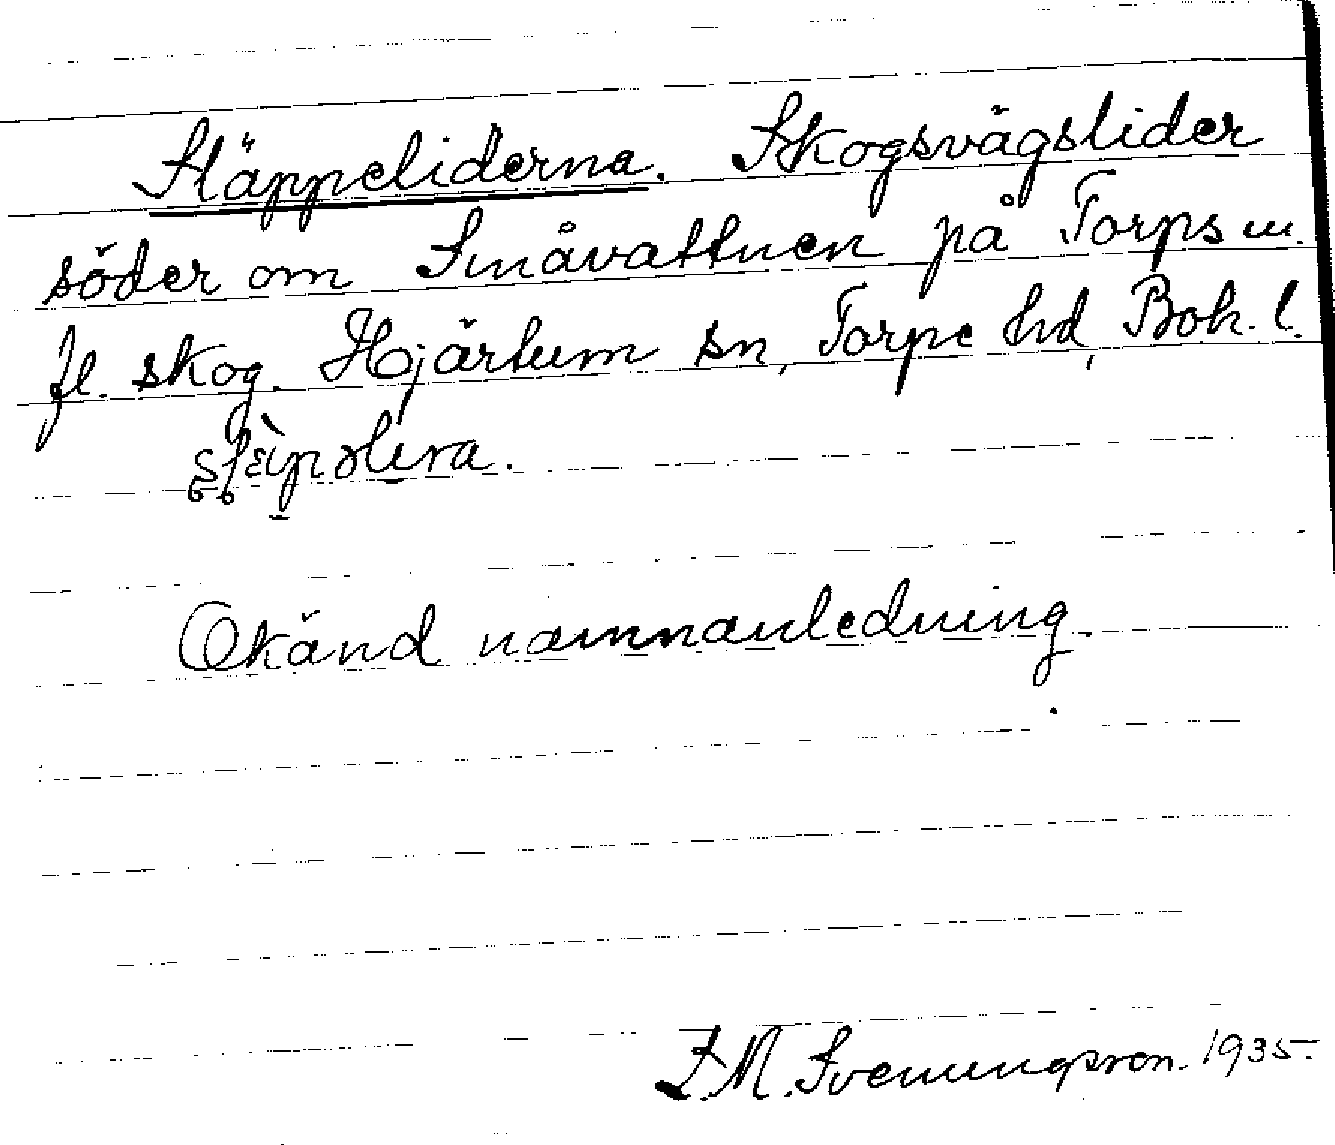 Släppeliderna. Skogsvägslider
söder om Småvattnen på Torps m.
fl. skog. Hjärtum sn, Torpe hd, Boh. l.
Okänd namnanledning.
S. M. Svenungsson. 1935.